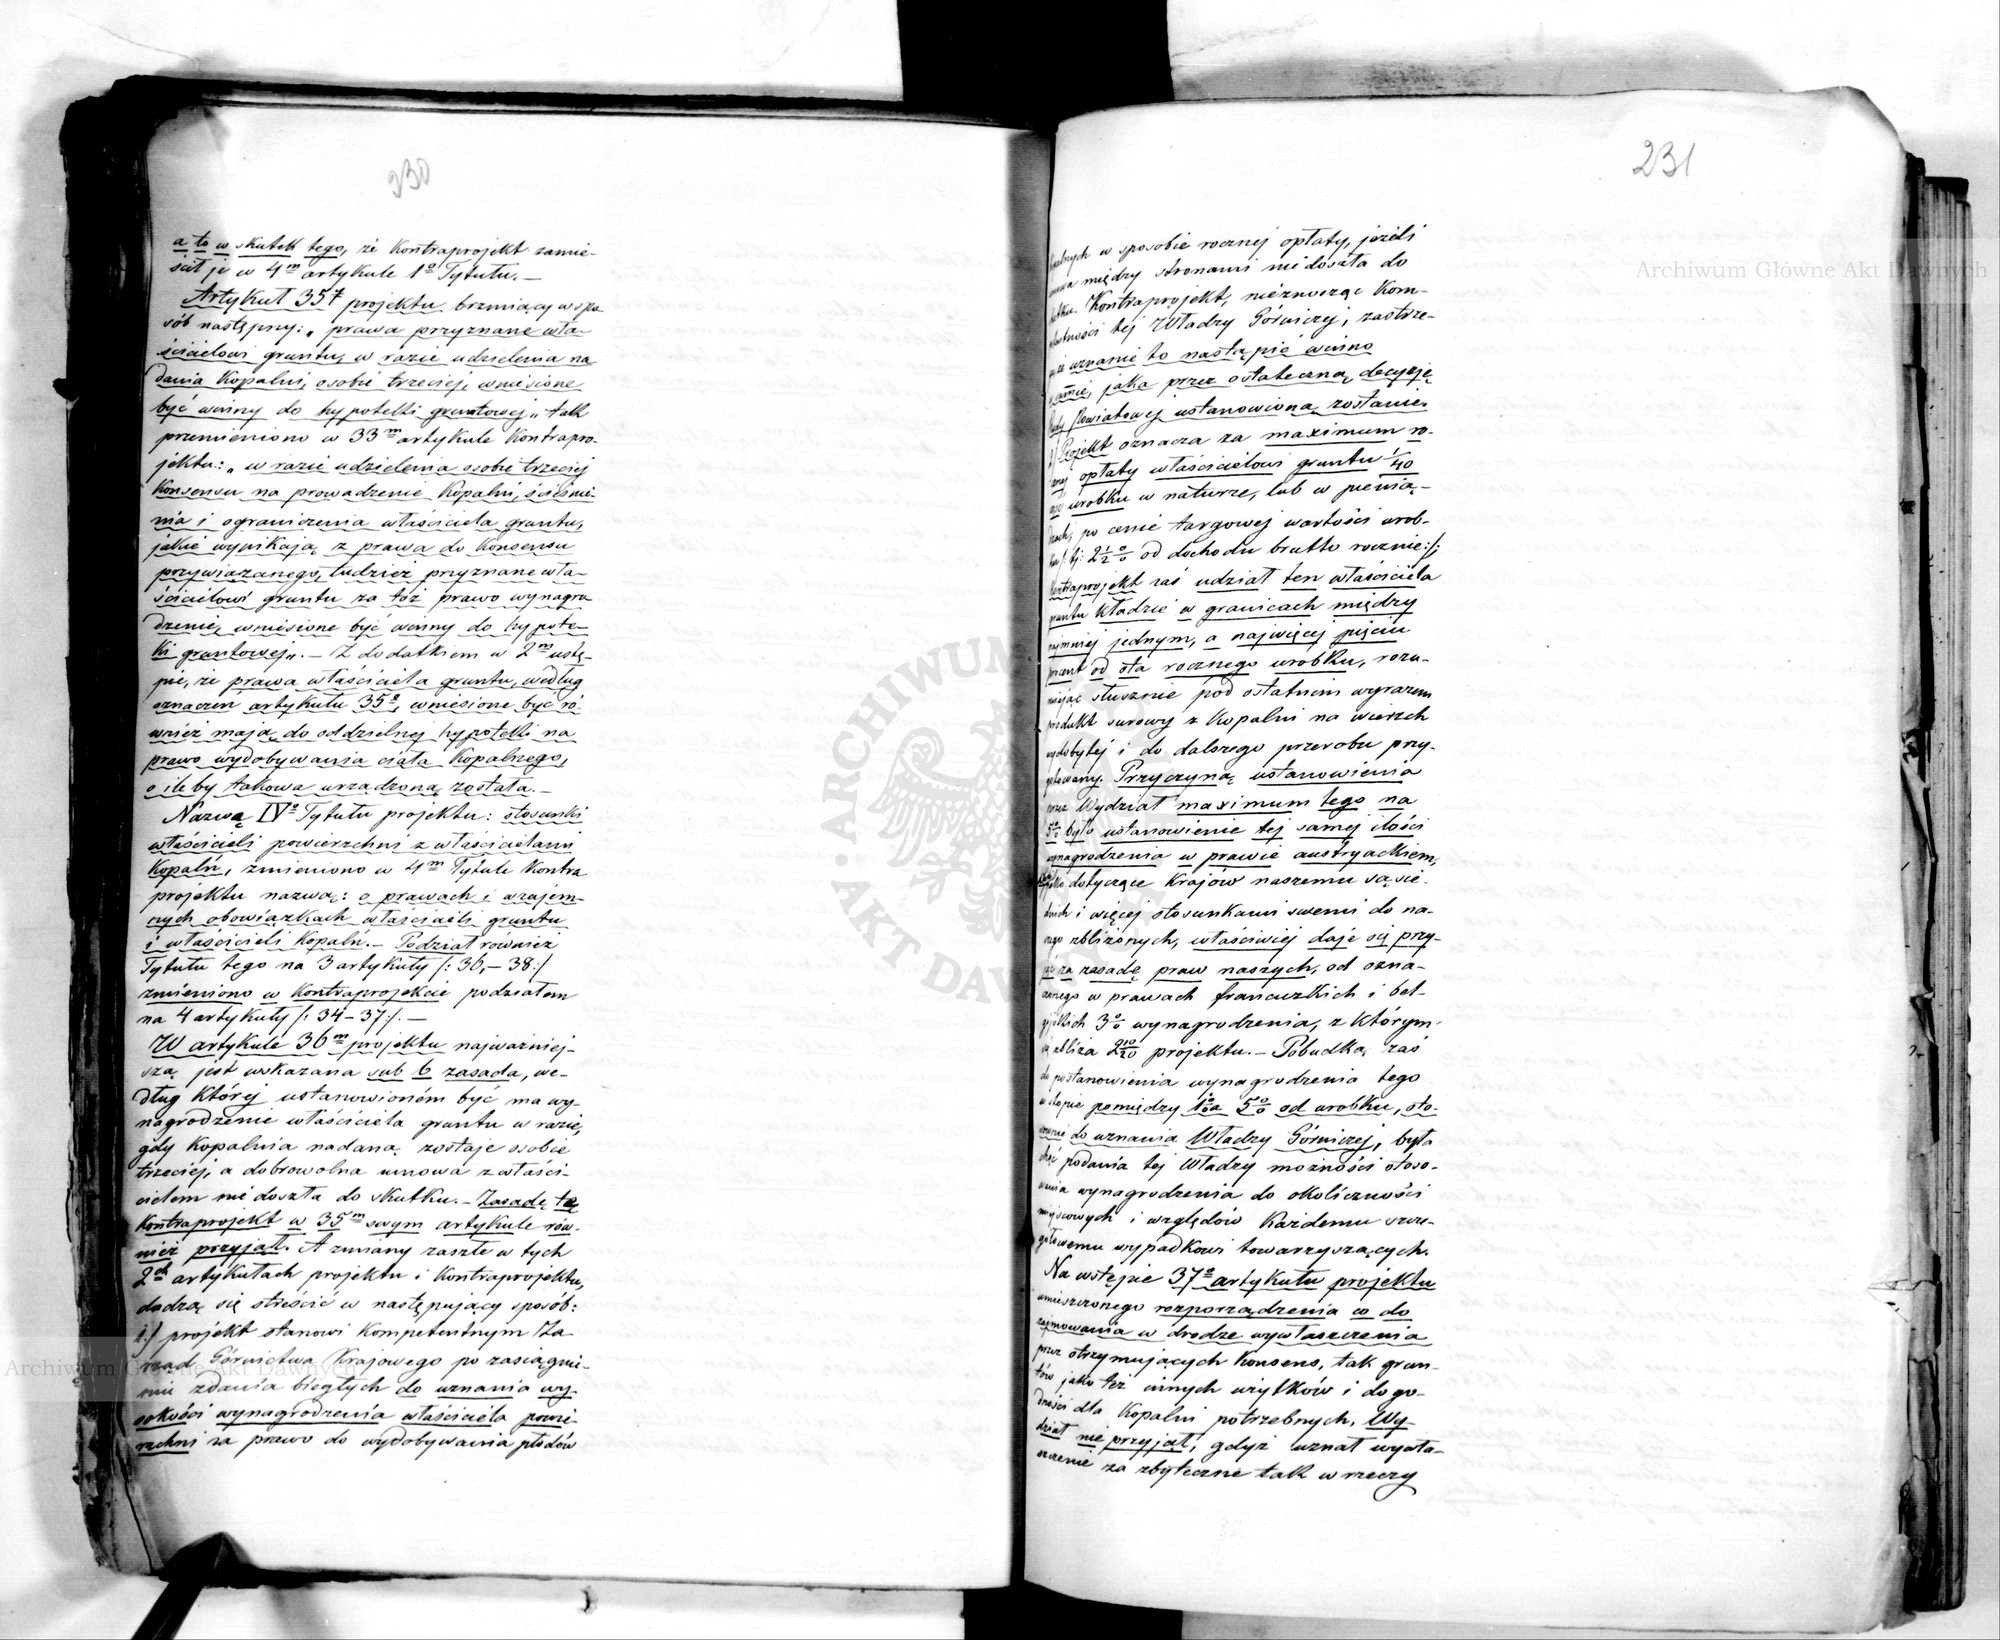 230
a to w skutek tego, że Kontraprojekt zamie-
ścił je w 4m artykule 1o Tytułu. —
Artykuł 35ty projektu brzmiący w spo-
sób następny: „prawa przyznane wła-
ścicielowi gruntu, w razie udzielenia na
dania Kopalni, osobie trzeciej, wniesione
być winny do hypoteki gruntowej„ tak
przemieniono w 33m artykule Kontrapro-
jektu: „w razie udzielenia osobie trzeciej
Konsensu na prowadzenie Kopalni, ścieśnie-
nia i ograniczenia właściciela gruntu,
jakie wynikają z prawa do Konsensu
przywiązanego, tudzież przyznane wła-
ścicielowi gruntu za tóż prawo wynagro
dzenie, wniesione być winny do hypote-
ki gruntowej„. — Z dodatkiem w 2m ustę-
pie, że prawa właściciela gruntu, według
oznaczeń artykułu 35o, wniesione być ró-
wnież mają do oddzielnej hypoteki na
prawo wydobywania ciała Kopalnego,
o ileby takowa urządzoną została. —
Nazwę IVo Tytułu projektu: stosunki
właścicieli powierzchni z właścicielami
Kopalń, zmieniono w 4m Tytule Kontra
projektu nazwą: o prawach i wzajem-
nych obowiązkach właścicieli gruntu
i właścicieli Kopalń. — Podział również
Tytułu tego na 3 artykuły /: 36, – 38:/
zmieniono w Kontraprojekcie podziałem
na 4 artykuły /: 34 – 37:/. —
W artykule 36m projektu najważniej-
szą jest wskazana sub 6 zasada, we-
dług której ustanowioném być ma wy-
nagrodzenie właściciela gruntu w razie,
gdy Kopalnia nadaną zostaje osobie
trzeciej, a dobrowolna umowa z właści-
cielem nie doszła do skutku. — Zasadę tę
Kontraprojekt w 35m swym artykule rów-
nież przyjął. A zmiany zaszłe w tych
2ch artykułach projektu i Kontraprojektu,
dadzą się streścić w następujący sposób:
1.) projekt stanowi Kompetentnym Za-
rząd Górnictwa Krajowego po zasiągnie-
niu zdania biegłych do uznania wy-
sokości wynagrodzenia właściciela powie-
rzchni za prawo do wydobywania płodów
231
kopalnych w sposobie rocznej opłaty, jeżeli
umowa między stronami niedoszła do
skutku. Kontraprojekt, nieznosząc Kom-
petentności tej Władzy Górniczej, zastrze-
ga że uznanie to nastąpić winno
w sumie, jaka przez ostateczną decyzję
Rady Powiatowej ustanowioną zostanie.
2) Projekt oznacza za maximum ro-
cznej opłaty właścicielowi gruntu 1/40
część urobku w naturze, lub w pienią-
dzach, po cenie targowej wartości urob-
ku /: tj: 2 1/2 % od dochodu brutto rocznie:/;
Kontraprojekt zaś udział ten właściciela
gruntu kładzie w granicach między
najmniej jednym, a najwięcej pięciu
procent od sta rocznego urobku, rozu-
miejąc słusznie pod ostatnim wyrazem
produkt surowy z Kopalni na wierzch
wydobytej i do dalszego przerobu przy-
gotowany. Przyczyną ustanowienia
przez Wydział maximum tego na
5% było ustanowienie tej samej ilości
wynagrodzenia w prawie austryackiem,
dotyczące Krajów naszemu sąsie-
dnich i więcej stosunkami swemi do na-
szego zbliżonych, właściwiej daje się przy-
jąć za zasadę praw naszych, od ozna-
czonego w prawach francuzkich i bel-
gijskich 3% wynagrodzenia, z którym-
się zbliża 2 10/20 projektu. — Pobudką zaś
do postanowienia wynagrodzenia tego
w stopie pomiędzy 1% a 5% od urobku, sto-
sownie do uznania Władzy Górniczej, była
chęć podania tej Władzy możności stoso-
wania wynagrodzenia do okoliczności
miejscowych i względów Każdemu szcze-
gółowemu wypadkowi towarzyszących.
Na wstępie 37o artykułu projektu
umieszczonego rozporządzenia co do
zajmowania w drodze wywłaszczenia
przez otrzymujących Konsens, tak grun-
tów jako też innych użytków i dogo-
dności dla Kopalni potrzebnych, Wy-
dział nie przyjął, gdyż uznał wywła-
szczenie za zbyteczne tak w rzeczy
Archiwum Główne Akt Dawnych
Archiwum Główne Akt Dawnych
ARCHIWUM
AKT DAW